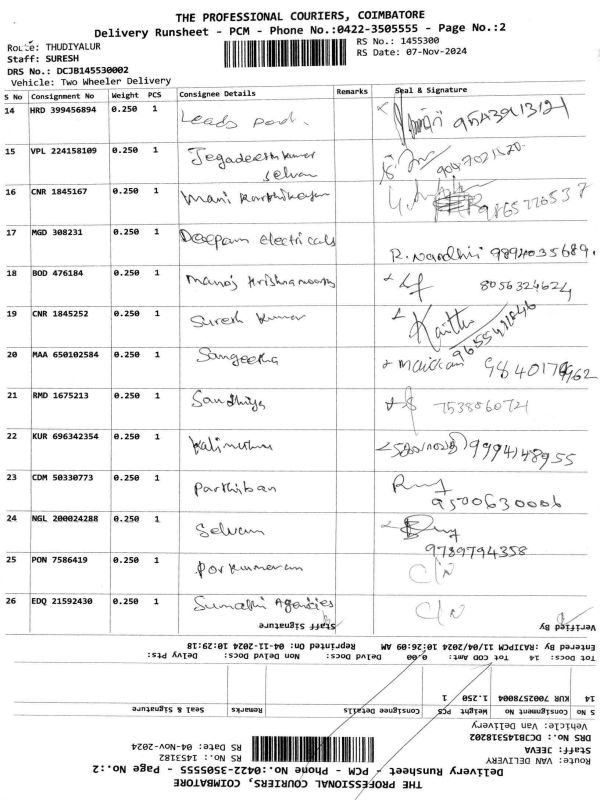 THE PROFESSIONAL COURIERS, COIMBATORE
Delivery Runsheet - PCM - Phone No.:0422-3505555 - Page No.:2
Route: THUDIYALUR
RS No.: 1455300
Staff: SURESH
RS Date: 07-Nov-2024
DRS No.: DCJB145530002
Vehicle: Two Wheeler Delivery
S No Consignment No Weight PCS Consignee Details Remarks Seal & Signature
14 HRD 399456894 0.250 1 Leads
15 VPL 224158109 0.250 1 Jegadeeshkumar
selvan
16 CNR 1845167 0.250 1 Mani Karthikeyan 9865776537
17 MGD 308231 0.250 1 Deepam electricals R. Nandhii 9894035689.
18 BOD 476184 0.250 1 Manoj Krishnamoorthy 8056324624
19 CNR 1845252 0.250 1 Suresh Kumar
20 MAA 650102584 0.250 1 Sangeetha
21 RMD 1675213 0.250 1 Sandhiya 7538860721
22 KUR 696342354 0.250 1 Kalimuthu 9994148955
23 CDM 50330773 0.250 1 Parthiban 9500630006
24 NGL 200024288 0.250 1 Selvam 9789794358
25 PON 7586419 0.250 1 Porkumaran C/N
26 EDQ 21592430 0.250 1 Sumathi Agencies C/N
Staff Signature Verified By
Entered By: RAJIPCM 11/04/2024 10:26:09 AM Reprinted On: 04-11-2024 10:29:18
Tot Docs: 14 Tot COD Amt: 0.00 Delvd Docs: Non Delvd Docs: Delvy Pts:
14 KUR 7002578004 1.250 1
S No Consignment No Weight PCS Consignee Details Remarks Seal & Signature
Vehicle: Van Delivery
DRS No.: DCJB145318202
RS Date: 04-Nov-2024
Staff: JEEVA
RS No.: 1453182
Route: VAN DELIVERY
Delivery Runsheet - PCM - Phone No.:0422-3505555 - Page No.:2
THE PROFESSIONAL COURIERS, COIMBATORE